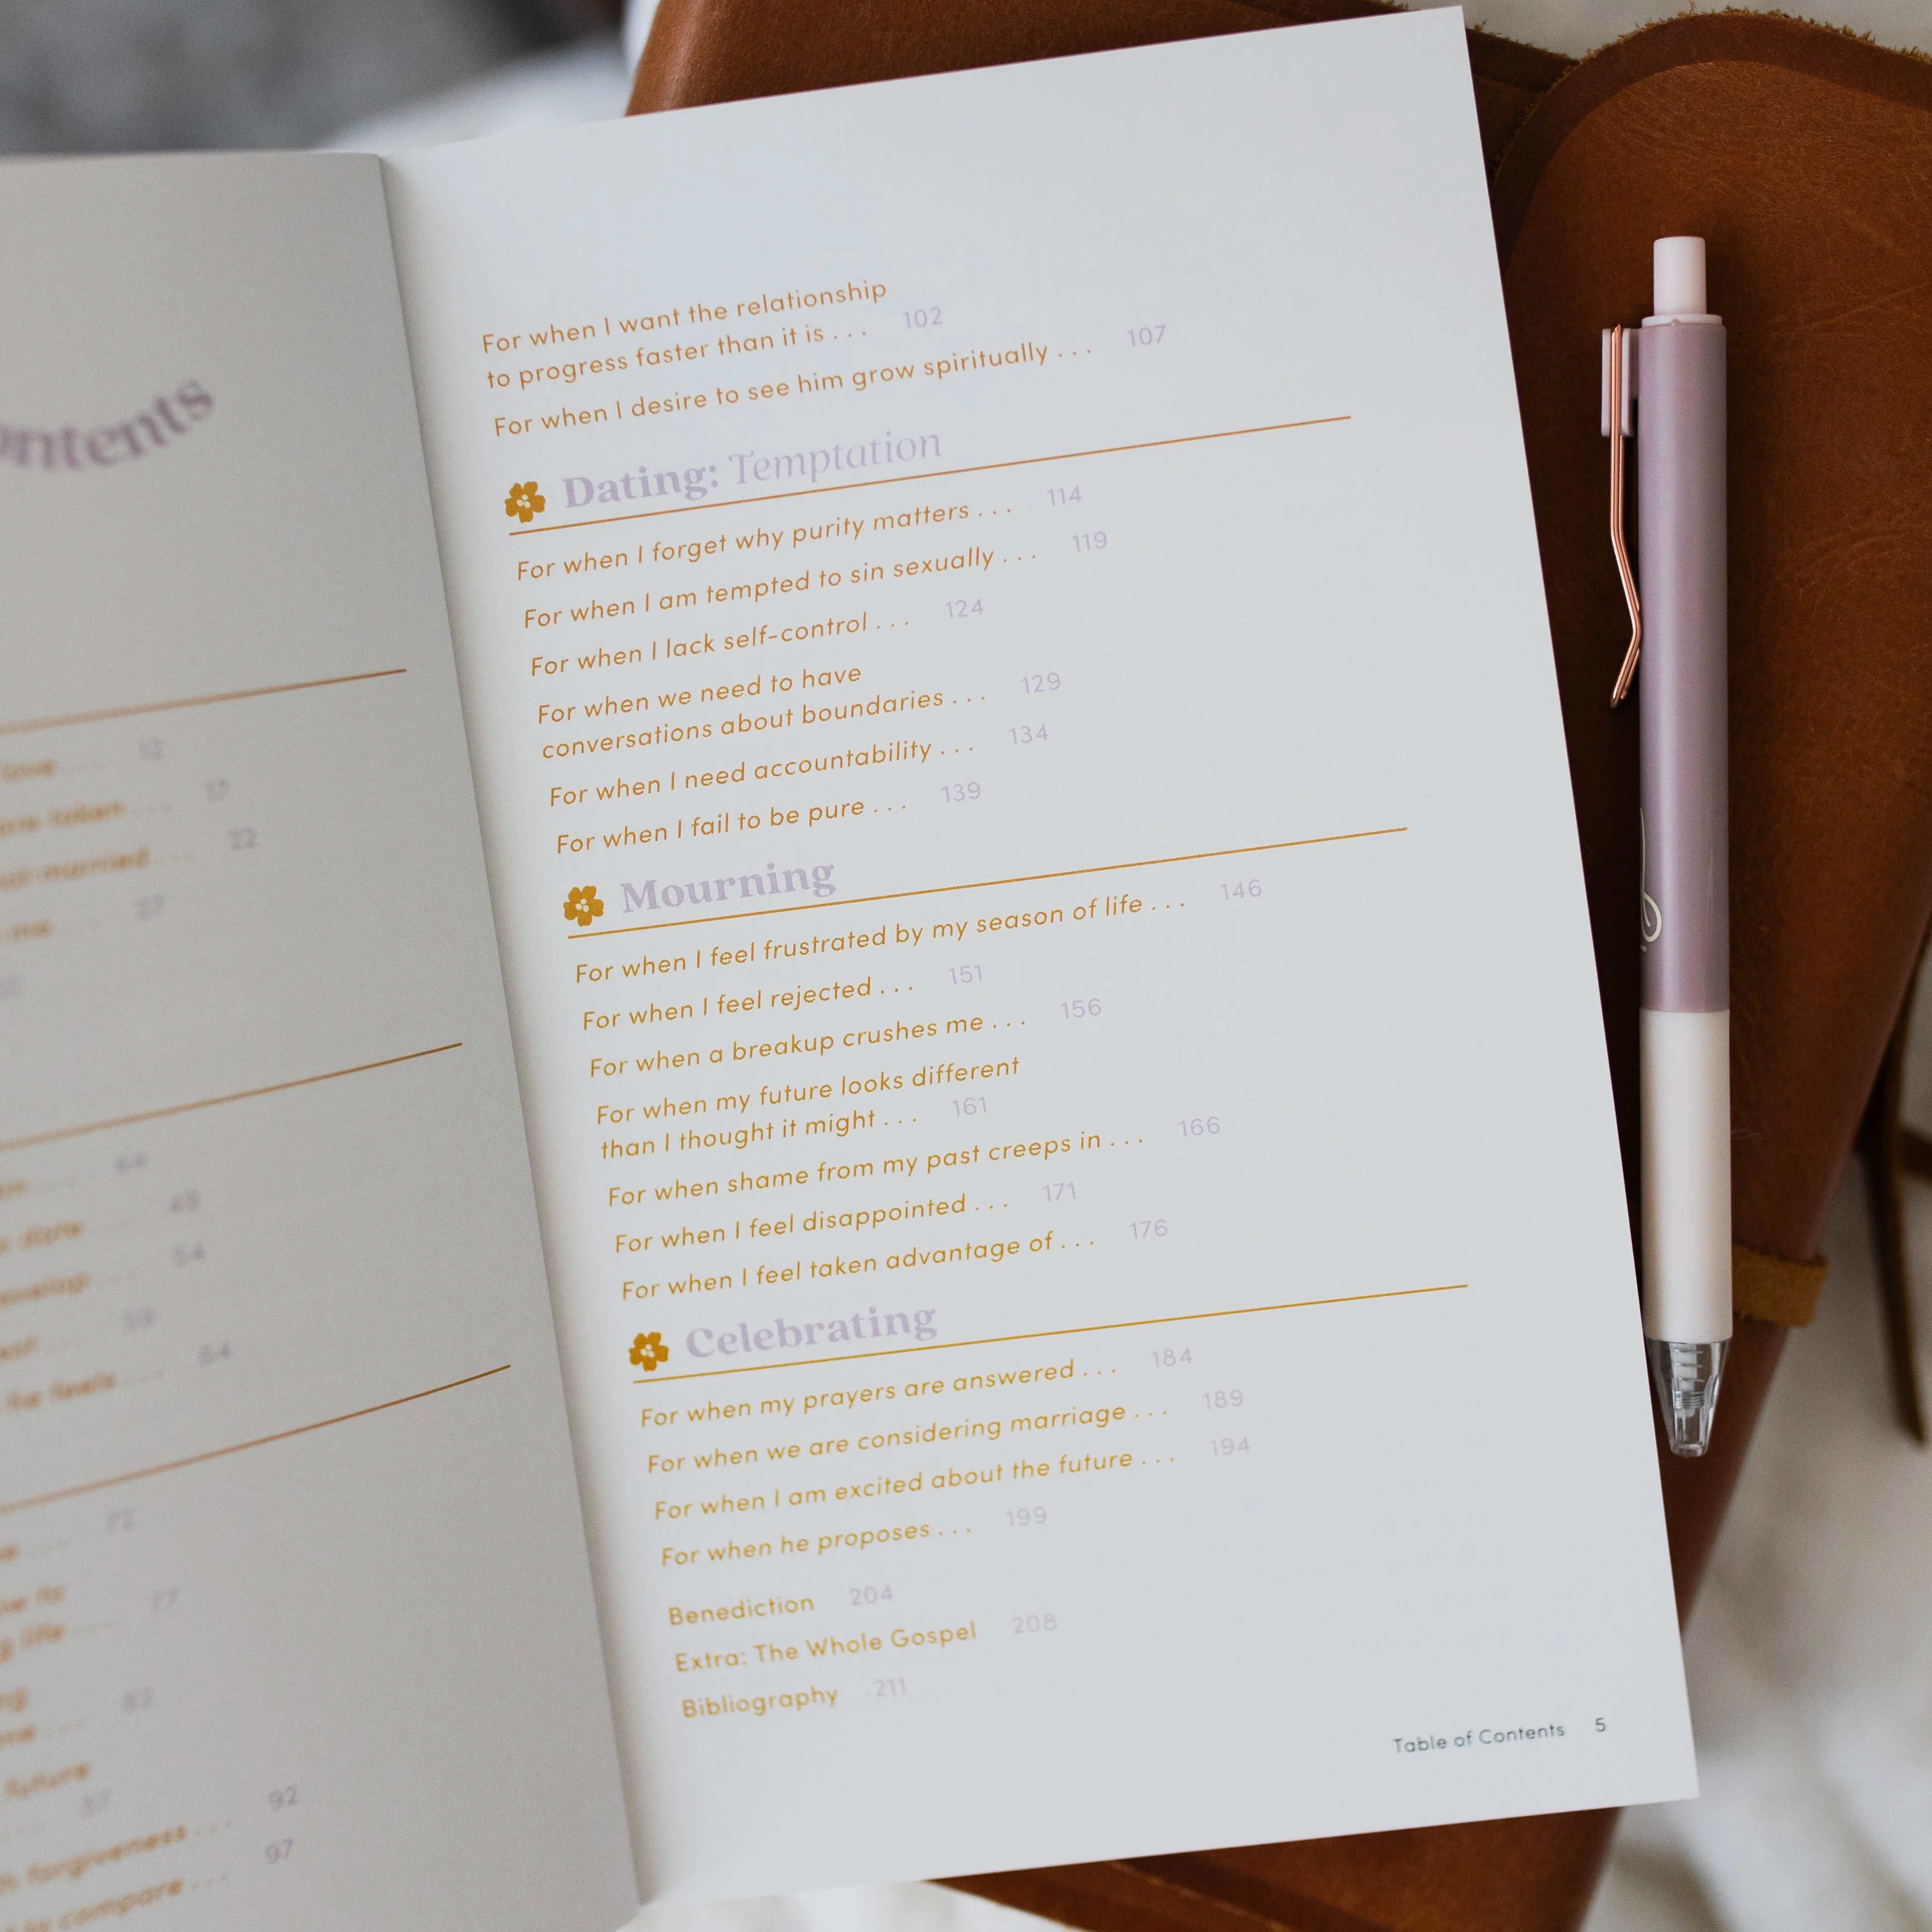 ontents
love . . . 12
are taken . . . 17
not married . . . 22
me . . . 27
44
date . . . 49
54
59
he feels . . . 64
72
77
life . . .
82
future
87
forgiveness . . . 92
to compare . . . 97
For when I want the relationship
to progress faster than it is . . . 102
For when I desire to see him grow spiritually . . . 107
Dating: Temptation
For when I forget why purity matters . . . 114
For when I am tempted to sin sexually . . . 119
For when I lack self-control . . . 124
For when we need to have
conversations about boundaries . . . 129
For when I need accountability . . . 134
For when I fail to be pure . . . 139
Mourning
For when I feel frustrated by my season of life . . . 146
For when I feel rejected . . . 151
For when a breakup crushes me . . . 156
For when my future looks different
than I thought it might . . . 161
For when shame from my past creeps in . . . 166
For when I feel disappointed . . . 171
For when I feel taken advantage of . . . 176
Celebrating
For when my prayers are answered . . . 184
For when we are considering marriage . . . 189
For when I am excited about the future . . . 194
For when he proposes . . . 199
Benediction 204
Extra: The Whole Gospel 208
Bibliography 211
Table of Contents 5